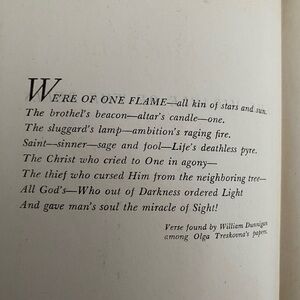 WE'RE OF ONE FLAME—all kin of stars and sun.
The brothel's beacon—altar's candle—one.
The sluggard's lamp—ambition's raging fire.
Saint—sinner—sage and fool—Life's deathless pyre.
The Christ who cried to One in agony—
The thief who cursed Him from the neighboring tree—
All God's—Who out of Darkness ordered Light
And gave man's soul the miracle of Sight!
Verse found by William Dunnigan
among Olga Treskovna's papers.